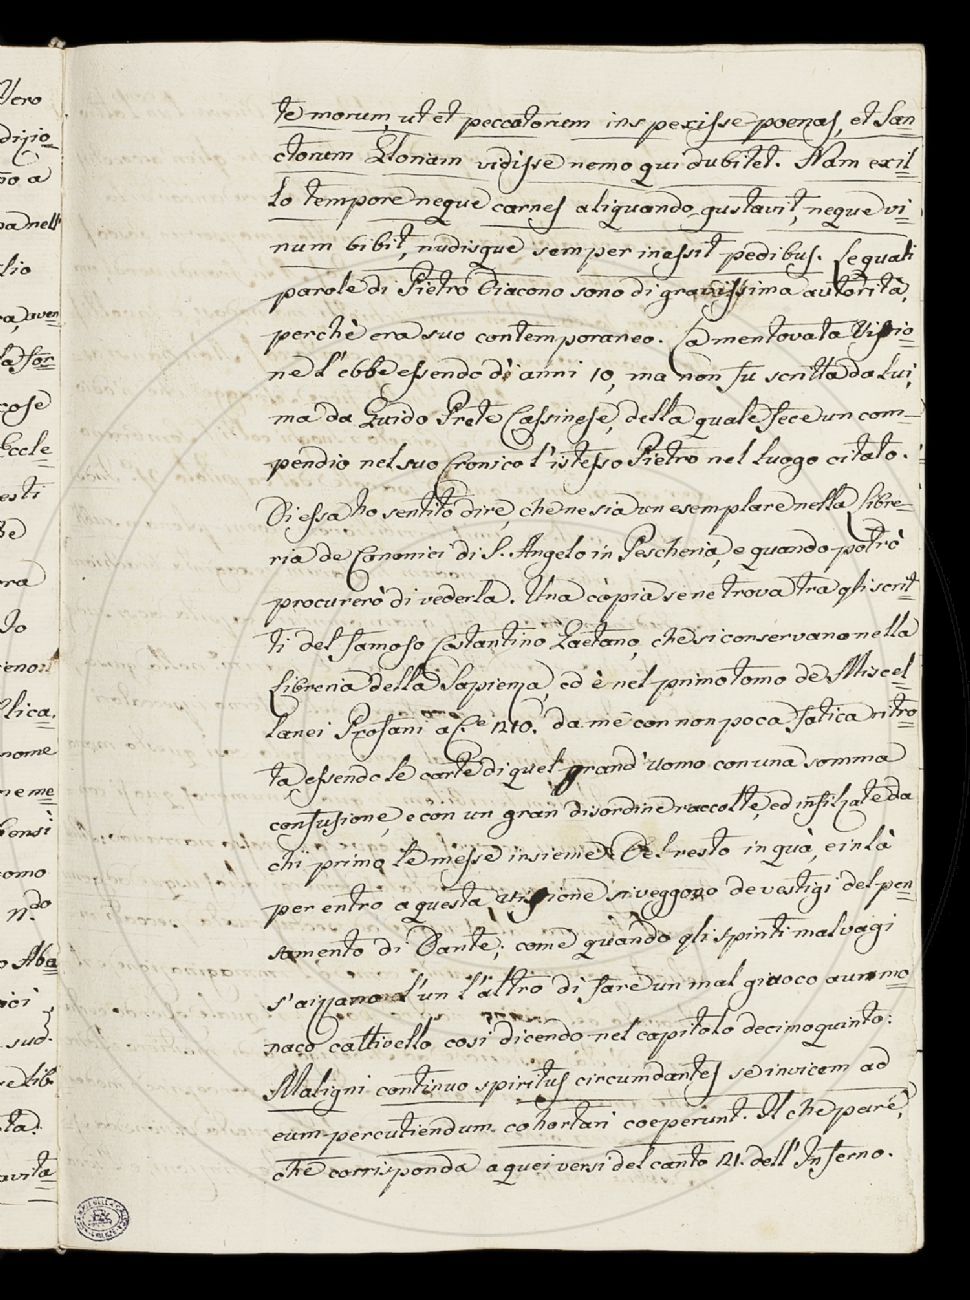 Vero
dizio-
po a
pa nell'
lio
ra, aven
la for
cose
Eccle
esti
te
ora
Io
enon
lica,
nome
me me
bensì
como
n.do
o Aba
sud.
e lib
sta.
avita
te morum, ut et peccatorum inspexisse poenas, et San
ctorum Gloriam vidisse nemo qui dubitet. Nam ex il
lo tempore neque carnes aliquando gustavit, neque vi=
num bibit, nudisque semper inessit pedibus. Le quali
parole di Pietro Diacono sono di gravissima autorità,
perchè era suo contemporaneo. La mentovata Visio
ne l'ebbe essendo di anni 10, ma non fu scritta da Lui,
ma da Guido Prete Cassinese, della quale fece un com-
pendio nel suo Cronico l'istesso Pietro nel luogo citato.
Di essa ho sentito dire, che ne sia un esemplare nella Libre-
ria de Canonici di S. Angelo in Pescheria, e quando potrò
procurerò di vederla. Una còpia se ne trova tra gli scrit
ti del famoso Costantino Gaetano, che si conservano nella
Libreria della Sapienza, ed è nel primo tomo de Miscel
lanei Profani a C.e 1210. da me con non poca fatica ritro
ta, essendo le carte di quel grand'Uomo con una somma
confusione, e con un gran disordine raccolte, ed infilzate da
chi primo le messe insieme. Del resto in quà, e in là
per entro a questa Visione si veggono de vestigi del pen
samento di Dante; come quando gli spiriti malvagi
s'aizzano l'un l'altro di fare un mal giuoco a un mo
naco cattivello così dicendo nel capitolo decimoquinto:
Maligni continuo spiritus circumdantes se invicem ad
eum percutiendum cohortari coeperunt. Il che pare,
che corrisponda a quei versi del canto 21. dell'Inferno.